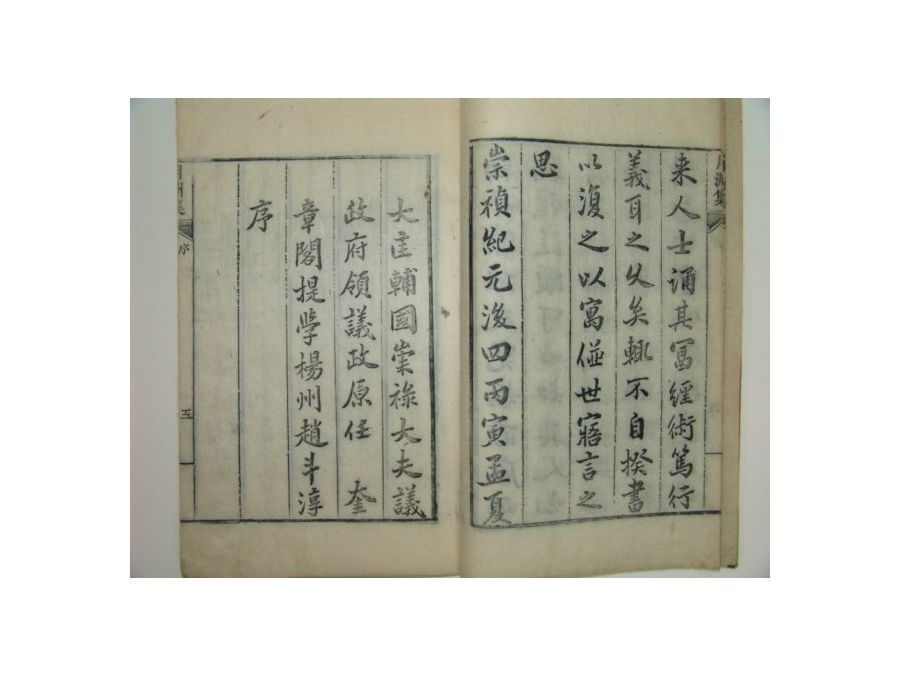 来人士誦其冨經術篤行
義耳之久矣輒不自揆書
以復之以寓世寤言之
思
崇禎紀元後四丙寅孟夏
大匡輔國崇祿大夫議
政府領議政原任 奎
章閣提學楊州趙斗淳
序
集 序 五